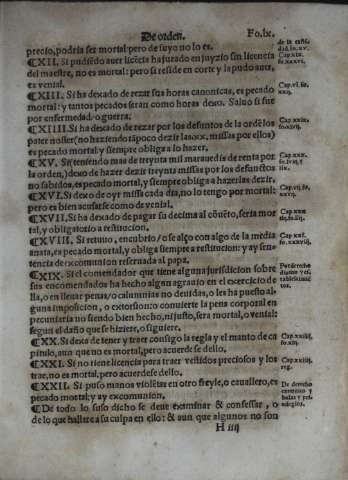 De orden. Fo.lx.
precio, podria ser mortal: pero de suyo no lo es.
¶XII. Si pudiẽdo auer licẽcia ha jurado en juyzio sin licencia
del maestre, no es mortal: pero si reside en corte y la pudo auer,
es venial.
¶XIII. Si ha dexado de rezar sus horas canonicas, es pecado
mortal: y tantos pecados seran como horas dexo. Saluo si fue
por enfermedad, o guerra.
¶XIIII. Si ha dexado de rezar por los defuntos de la ordẽ los
pater noster (no haziendo tãpoco dezir las xx. missas por ellos)
es pecado mortal y siempre obliga lo hazer.
¶XV. Si (teniendo mas de treynta mil marauedis de renta por
la orden,) dexo de hazer dezir treynta missas por los defunctos
no sabidos, es pecado mortal, y siempre obliga a hazerlas dezir.
¶XVI. Si dexo de oyr missa cada dia, no lo tengo por mortal:
pero es bien acusarse como de venial.
¶XVII. Si ha dexado de pagar su decima al cõuẽto, seria mor
tal, y obligatorio a restitucion.
¶XVIII. Si retuuo, encubrio, o se alço con algo de la media
anata, es pecado mortal, y obliga siempre a restitucion: y ay sen-
tencia de excomunion reseruada al papa.
¶XIX. Si el comendador que tiene alguna jurisdicion sobre
sus encomendados ha hecho algun agrauio en el exercicio de
lla, o en lleuar penas, o calumnias no deuidas, o les ha puesto al
guna imposicion, o extorsion: o conuierte la pena corporal en
pecuniaria no siendo bien hecho, ni justo, sera mortal, o venial:
segun el daño que se hiziere, o siguiere.
¶XX. Si dexa de tener y traer consigo la regla y el manto de ca
pitulo, aun que no es mortal, pero acuerdese dello.
¶XXI. Si no tiene licencia para traer vestidos preciosos y los
trae, no es mortal, pero acuerdese dello.
¶XXII. Si puso manos violẽtas en otro freyle, o cauallero, es
pecado mortal: y ay excomunion.
¶De todo lo suso dicho se deue examinar & confessar, o
de lo que hallare a su culpa en ello: & aun que algunos no son
H iiij